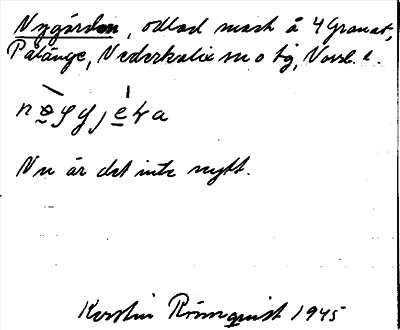 Nygården, odlad mark å 4 Granat,
Palänge, Nederkalix sn o tg, Norrb. l.
Nu är det inte nytt.
Kerstin Rönnquist 1945